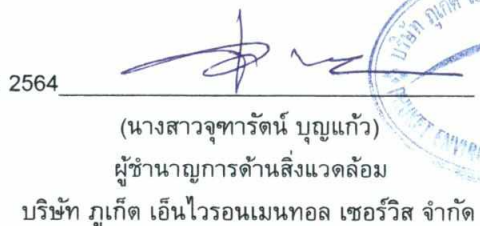 2564
(นางสาวจุฑารัตน์ บุญแก้ว)
ผู้ชำนาญการด้านสิ่งแวดล้อม
บริษัท ภูเก็ต เอ็นไวรอนเมนทอล เซอร์วิส จำกัด
บริษัท ภูเก็ต